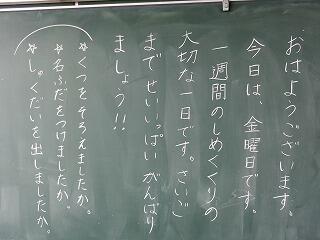 おはようございます。
今日は、金曜日です。
一週間のしめくくりの
大切な一日です。さいご
までせいいっぱいがんばり
ましょう!!
☆くつをそろえましたか。
☆名ふだをつけましたか。
☆しゅくだいを出しましたか。